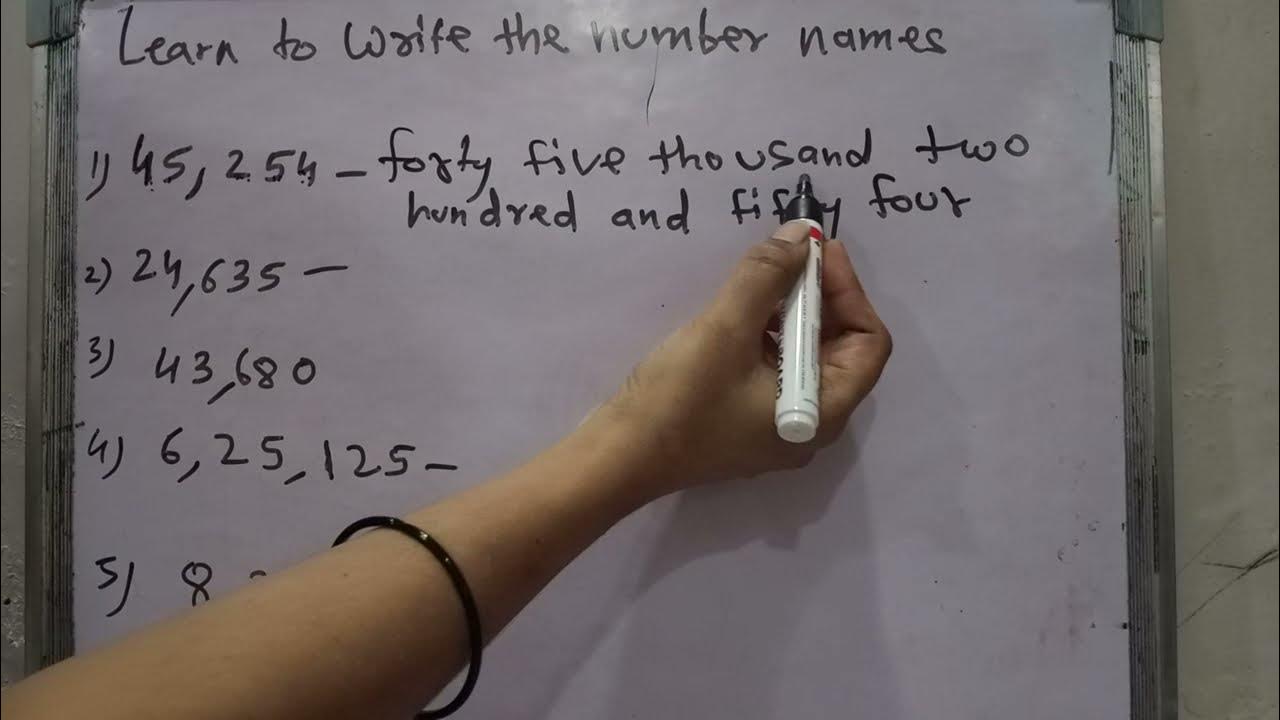 Learn to write the number names
1) 45,254 - forty five thousand two
hundred and fifty four
2) 24,635 —
3) 43,680
4) 6,25,125 -
5) 8